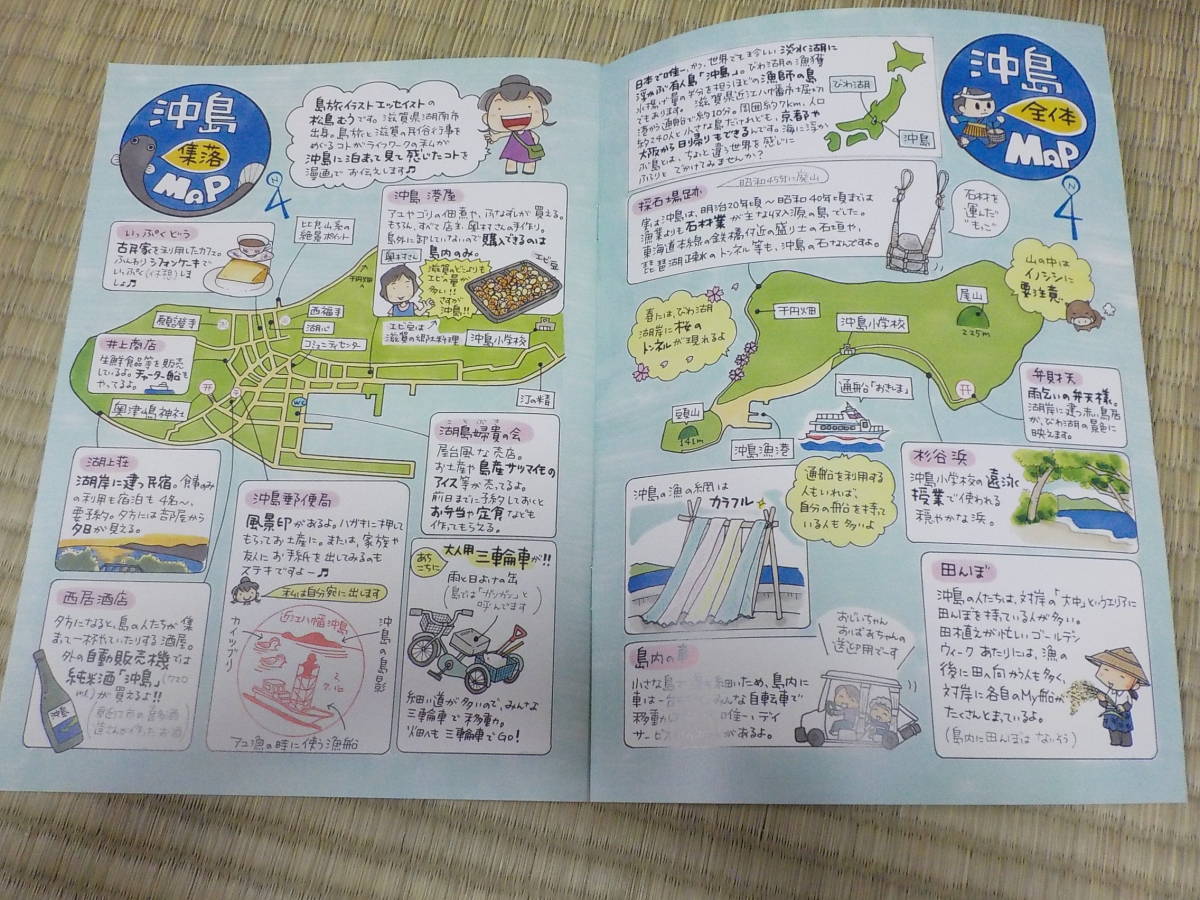 沖島
集落
MAP
N
島旅イラストエッセイストの
松鳥むうです。滋賀県湖南市
出身。島旅と滋賀の民俗行事を
めぐるコトがライフワークの私が
沖島に泊まって見て感じたコトを
漫画でお伝えします♫
いっぷくどう
古民家を利用したカフェ。
ふんわりシフォンケーキで
いっぷく(休憩)しま
しょ♫
比良山系の
絶景ポイント
千円畑
沖島 港屋
アユやゴリの佃煮や、ふなずしが買える。
もちろん、すべて店主・奥村さんの手作り。
島外に卸していないので購入できるのは
島内のみ。
奥村さん
滋賀のどこよりも
エビの量が
多い!!
さすが
沖島!!
エビ豆
エビ豆は
滋賀の郷土料理
沖島小学校
願證寺
西福寺
湖心
コミュニティセンター
井上商店
生鮮食品等を販売
しているよ。チャーター船も
やってるよ。
奥津嶋神社
WC
汀の精
湖上荘
湖岸に建つ民宿。食事のみ
の利用も宿泊も4名〜。
要予約。夕方には部屋から
夕日が見える。
沖島郵便局
風景印があるよ。ハガキに押して
もらってお土産に。または、家族や
友にお手紙を出してみるのも
ステキですよー♫
私は自分宛に出します
カイツブリ
近江八幡沖島
沖島の島影
アユ漁の時に使う漁船
湖島婦貴の会
屋台風な売店。
お土産や島産サツマイモの
アイス等が売ってるよ。
前日までに予約しておくと
お弁当や定食なども
作ってもらえる。
西居酒店
夕方になると、島の人たちが集
まって一杯やっていたりする酒屋。
外の自動販売機では
純米酒「沖島」(720
ml)が買えるよ!!
沖島
あち
こちに
大人用三輪車が!!
雨と日よけの缶
(島では「ガンガン」と
呼んでます)
細い道が多いので、みんな
三輪車で移動。
畑へも三輪車でGO!
日本で唯一、かつ、世界でも珍しい淡水湖に
浮かぶ有人島「沖島」。びわ湖の漁獲
水揚げ量の半分を担うほどの漁師の島
でもあります。滋賀県近江八幡市堀切
港から通船で約10分。周囲約7km、人口
約240人と小さな島だけれども、京都や
大阪から日帰りもできるんです。海に浮か
ぶ島とは、ちょっと違う世界を感じに
ぷらりとでかけてみませんか?
びわ湖
沖島
沖島
全体
MAP
N
採石場跡
昭和45年に廃山
実は沖島は、明治20年頃〜昭和40年頃までは
漁業よりも石材業が主な収入源の島でした。
東海道本線の鉄橋付近の盛り土の石垣や、
琵琶湖疏水のトンネル等も、沖島の石なんですよ。
石材を
運んだ
"もっこ"
山の中は
イノシシに
要注意
春には、びわ湖
湖岸に桜の
トンネルが現れるよ
千円畑
沖島小学校
尾山
225m
頭山
141m
沖島漁港
通船「おきしま」
弁財天
雨乞いの弁天様。
湖岸に建つ赤い鳥居
が、びわ湖の景色に
映えます。
沖島の漁の網は
カラフル
通船を利用する
人もいれば、
自分の船を持って
いる人も多いよ
杉谷浜
沖島小学校の遠泳
授業で使われる
穏やかな浜。
島内の車
おじいちゃん
おばあちゃんの
送迎用です
田んぼ
沖島の人たちは、対岸の「大中」というエリアに
田んぼを持っている人が多い。
田植えが忙しいゴールデン
ウィークあたりには、漁の
後に田へ向かう人も多く、
対岸に各自のMy船が
たくさんとまっているよ。
(島内に田んぼはないそう)